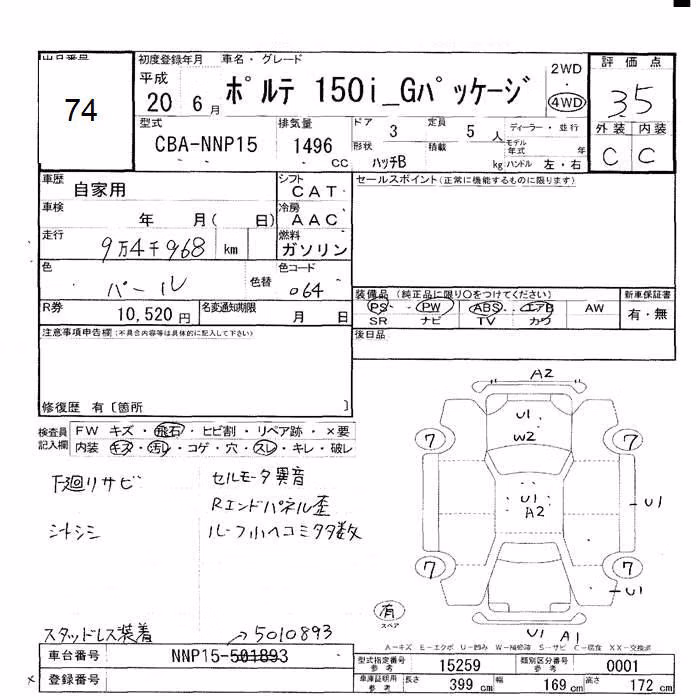 出品番号
74
初度登録年月
平成
20 6月
車名・グレード
ポルテ 150i_Gパッケージ
2WD
4WD
評価点
3.5
外装 内装
C C
型式
CBA-NNP15
排気量
1496 CC
ドア 3
定員 5 人
形状 ハッチB
積載 kg
ディーラー・並行
モデル年式 年
ハンドル 左・右
車歴 自家用
シフト CAT
車検 年 月( 日)
冷房 AAC
走行 9万4千968 km
燃料 ガソリン
色 パール
色替
色コード 064
R券 10,520円
名変通知期限 月 日
セールスポイント(正常に機能するものに限ります)
装備品 (純正品に限り○をつけてください)
PS・PW・ABS・エアB AW
SR ナビ TV カワ
新車保証書
有・無
後日品
注意事項申告欄(不具合内容等は具体的に記入して下さい)
修復歴 有〔箇所 〕
検査員記入欄
FW キズ・飛石・ヒビ割・リペア跡・×要
内装 キズ・汚レ・コゲ・穴・スレ・キレ・破レ
下廻リサビ
セルモータ異音
Rエンドパネル歪
シートシミ
ルーフ小ヘコミ多数
スタッドレス装着
→5010893
A2
U1
W2
7
7
U1
A2
U1
7
7
U1
有
スペア
U1 A1
A-キズ E-エクボ U-凹み W-補修波 S-サビ C-腐食 XX-交換済
車台番号 NNP15-501893
登録番号
×
型式指定番号 参考 15259
類別区分番号 参考 0001
車庫証明用 参考 長さ 399 cm 幅 169 cm 高さ 172 cm